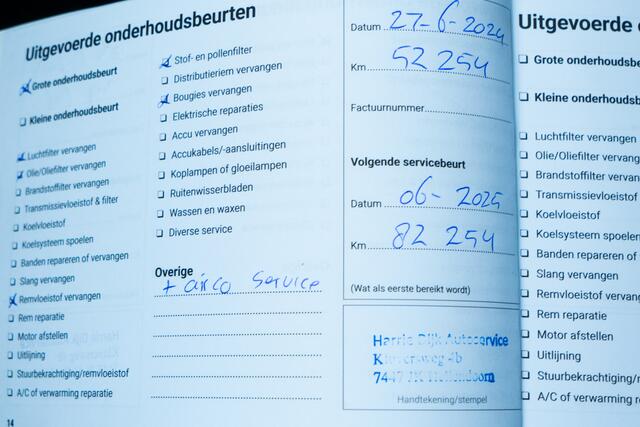 Uitgevoerde onderhoudsbeurten
Grote onderhoudsbeurt
Kleine onderhoudsbeurt
Luchtfilter vervangen
Olie/Oliefilter vervangen
Brandstoffilter vervangen
Transmissievloeistof & filter
Koelvloeistof
Koelsysteem spoelen
Banden repareren of vervangen
Slang vervangen
Remvloeistof vervangen
Rem reparatie
Motor afstellen
Uitlijning
Stuurbekrachtiging/remvloeistof
A/C of verwarming reparatie
14
Stof- en pollenfilter
Distributieriem vervangen
Bougies vervangen
Elektrische reparaties
Accu vervangen
Accukabels/-aansluitingen
Koplampen of gloeilampen
Ruitenwisserbladen
Wassen en waxen
Diverse service
Overige
+ airco service
Datum 27-6-2024
Km 52 254
Factuurnummer
Volgende servicebeurt
Datum 06-2025
Km 82 254
(Wat als eerste bereikt wordt)
Harrie Dijk Autoservice
Handtekening/stempel
Uitgevoerde
Grote onderhoudsbe
Kleine onderhoudsb
Luchtfilter vervangen
Olie/Oliefilter vervan
Brandstoffilter vervan
Transmissievloeistof
Koelvloeistof
Koelsysteem spoelen
Banden repareren of
Slang vervangen
Remvloeistof vervang
Rem reparatie
Motor afstellen
Uitlijning
Stuurbekrachtiging/r
A/C of verwarming re